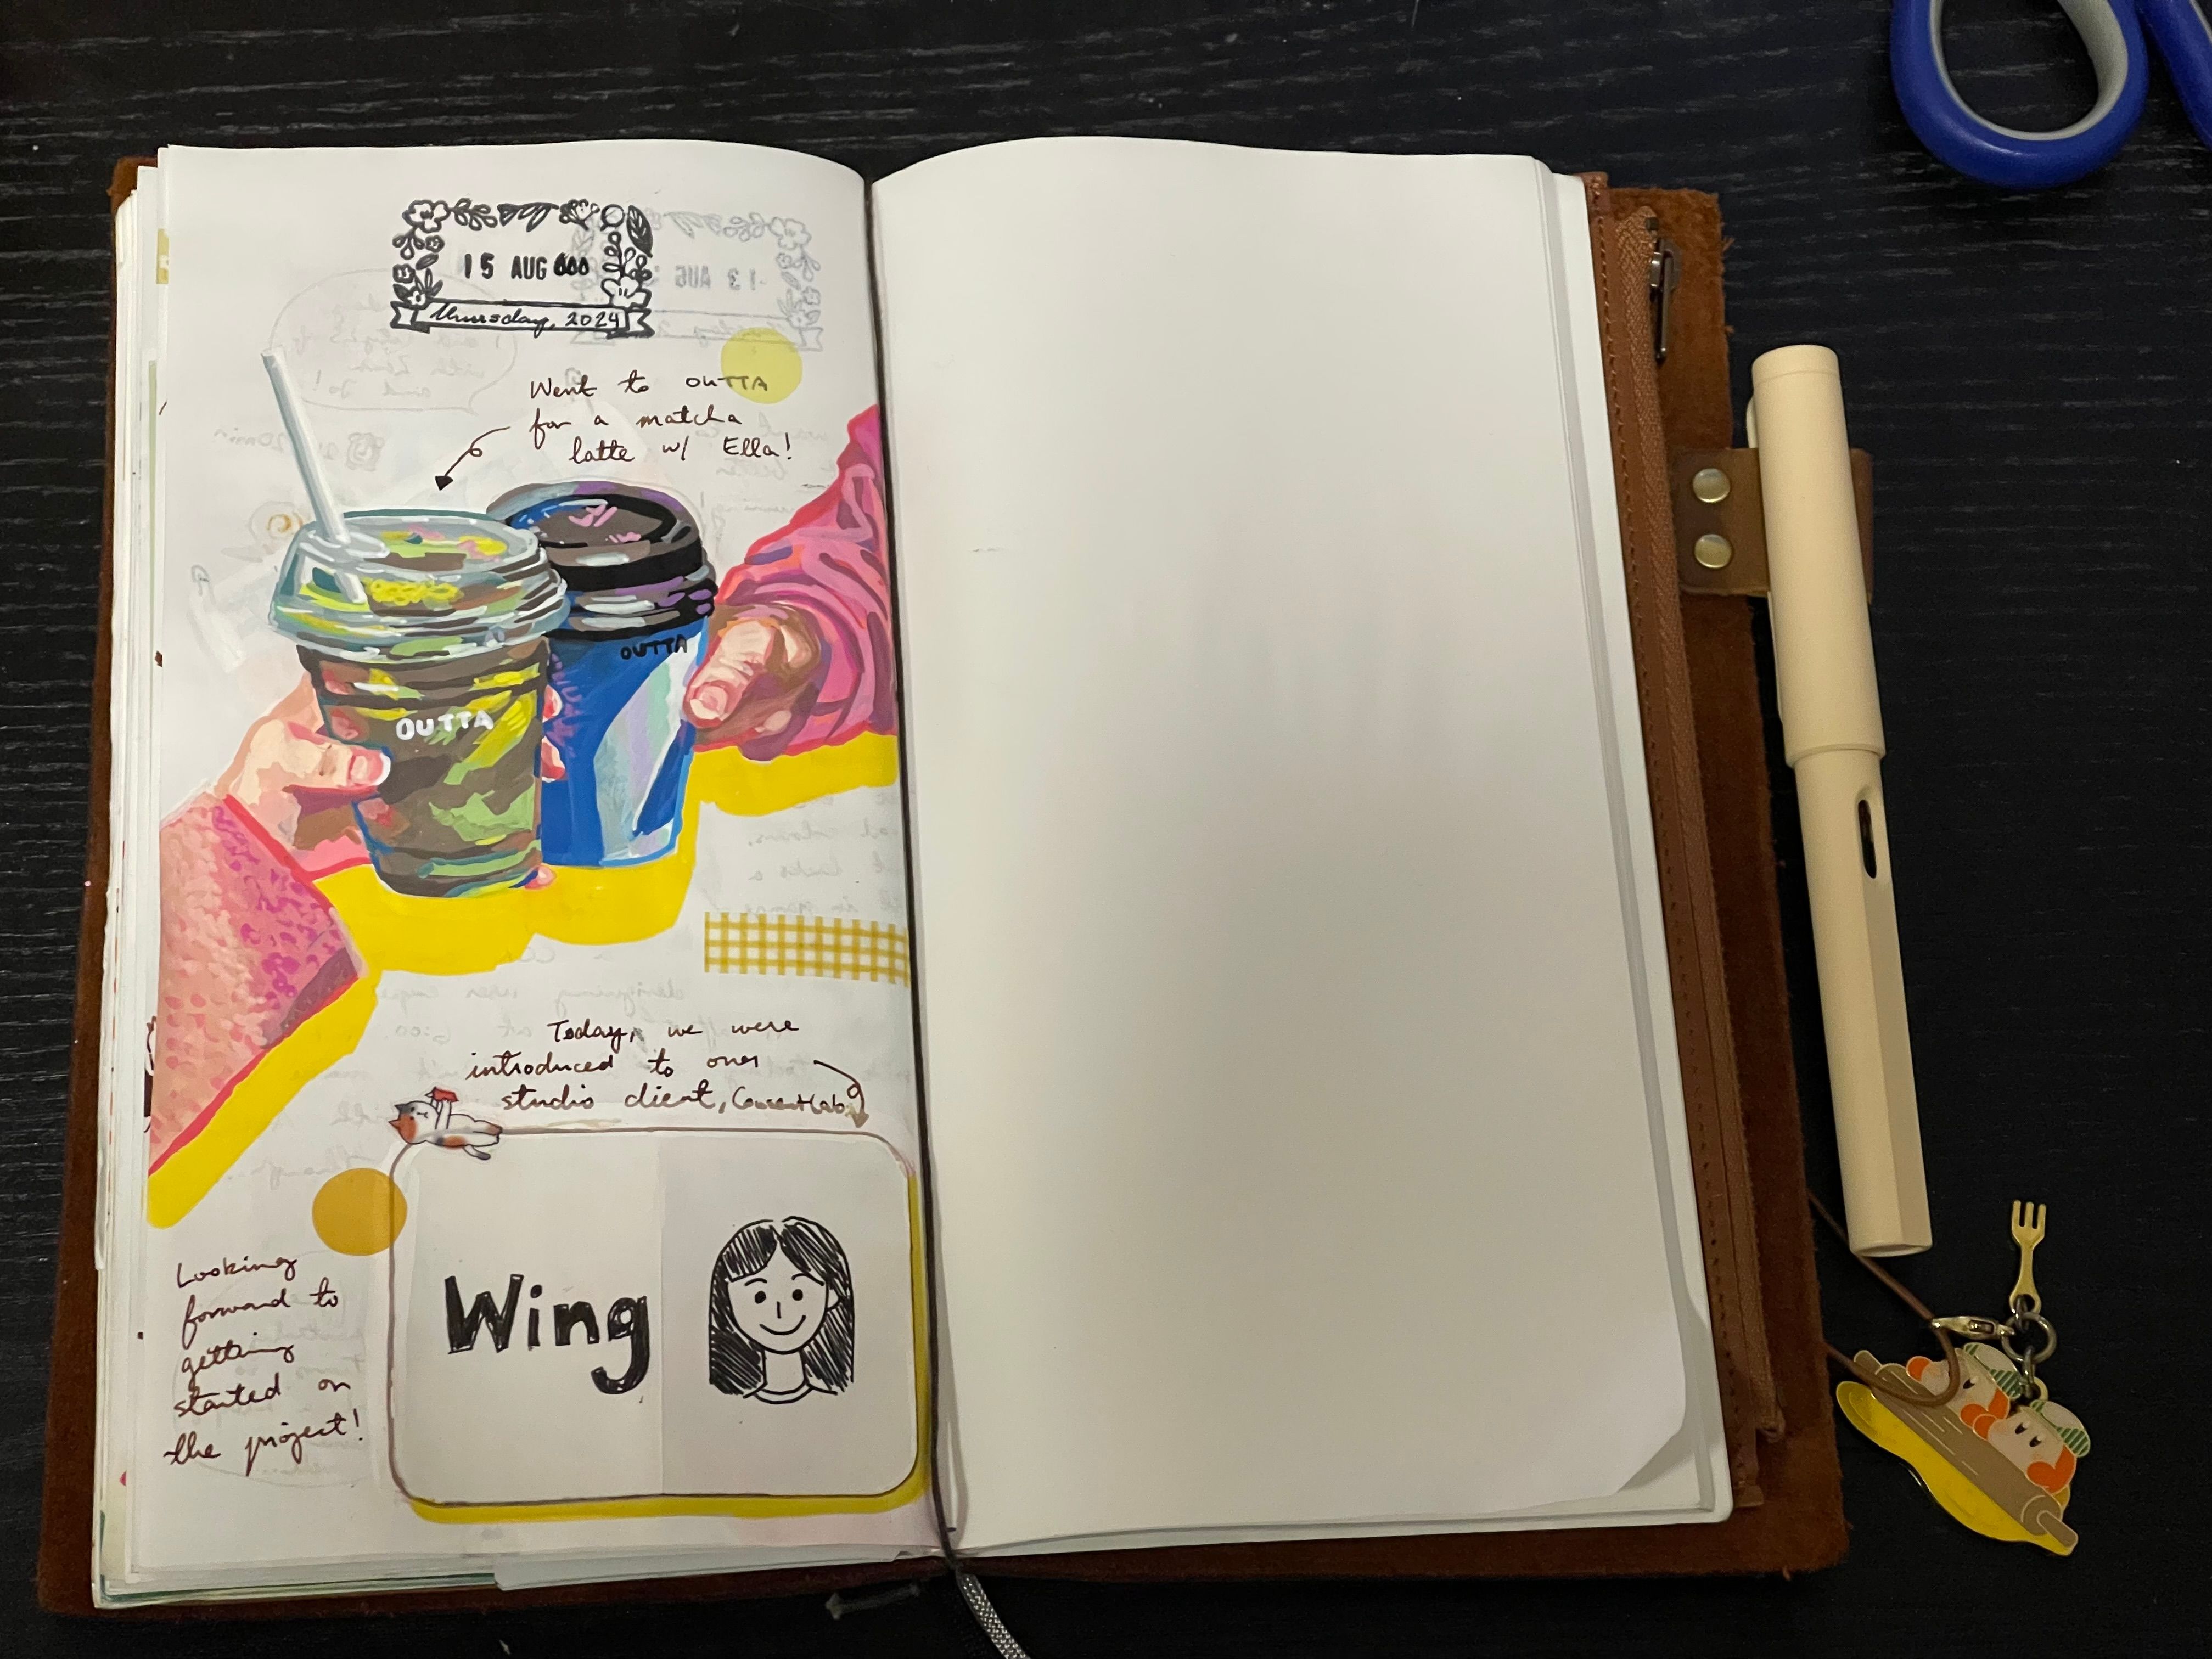 15 AUG
Thursday, 2024
Went to OUTTA
for a matcha
latte w/ Ella!
OUTTA
OUTTA
Today, we were
introduced to our
studio client,
Wing
Looking
forward to
getting
started on
the project!